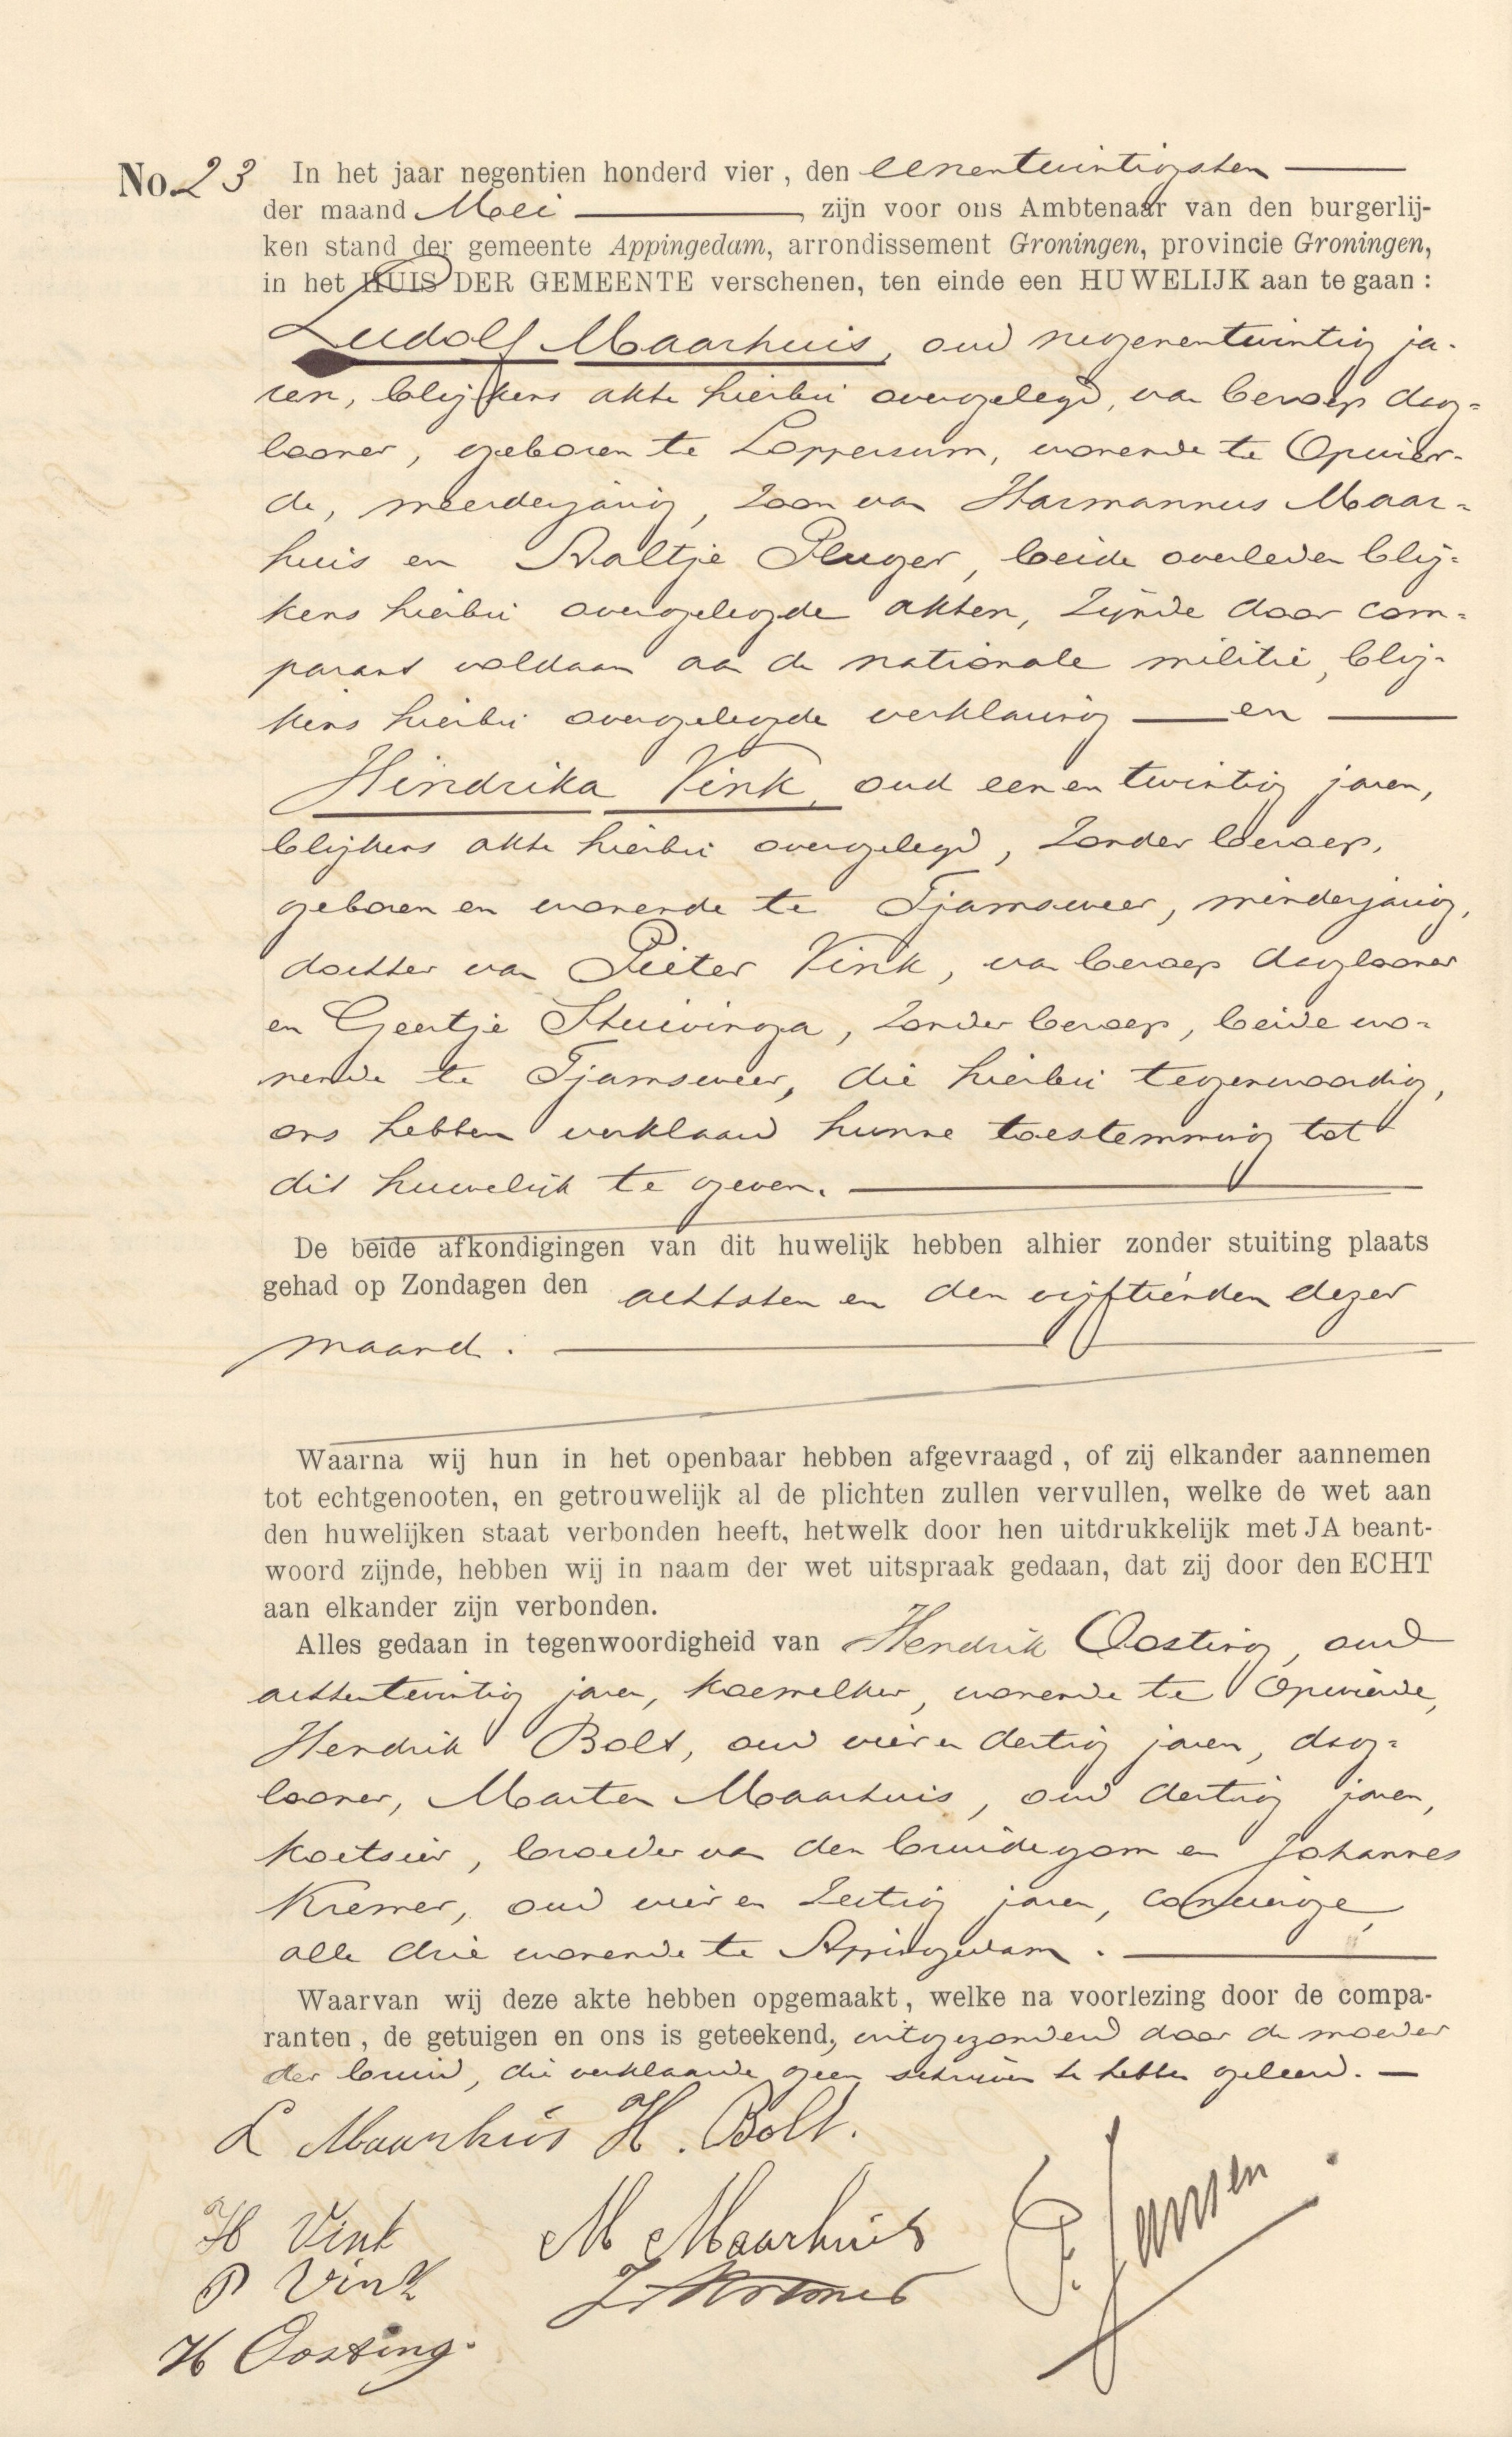 No. 23 In het jaar negentien honderd vier, den eenentwintigsten
der maand Mei zijn voor ons Ambtenaar van den burgerlij-
ken stand der gemeente Appingedam, arrondissement Groningen, provincie Groningen,
in het HUIS DER GEMEENTE verschenen, ten einde een HUWELIJK aan te gaan:
Ludolf Maarhuis, oud negenentwintig ja-
ren, blijkens akte hierbij overgelegd, van beroep dag-
looner, geboren te Loppersum, wonende te Opwier-
de, meerderjarig, zoon van Harmannus Maar-
huis en Aaltje Pluger, beide overleden blij-
kens hierbij overgelegde akten, zijnde door com-
parant voldaan aan de nationale militie, blij-
kens hierbij overgelegde verklaring en
Hindrika Vink, oud een en twintig jaren,
blijkens akte hierbij overgelegd, zonder beroep,
geboren en wonende te Tjamsweer, minderjarig,
dochter van Pieter Vink, van beroep daglooner
en Geertje Stuivinga, zonder beroep, beide wo-
nende te Tjamsweer, die hierbij tegenwoordig,
ons hebben verklaard hunne toestemming tot
dit huwelijk te geven.
De beide afkondigingen van dit huwelijk hebben alhier zonder stuiting plaats
gehad op Zondagen den achtsten en den vijftienden dezer
maand.
Waarna wij hun in het openbaar hebben afgevraagd, of zij elkander aannemen
tot echtgenooten, en getrouwelijk al de plichten zullen vervullen, welke de wet aan
den huwelijken staat verbonden heeft, hetwelk door hen uitdrukkelijk met JA beant-
woord zijnde, hebben wij in naam der wet uitspraak gedaan, dat zij door den ECHT
aan elkander zijn verbonden.
Alles gedaan in tegenwoordigheid van Hendrik Oosting, oud
achtentwintig jaren, koemelker, wonende te Opwierde,
Hendrik Bolt, oud vier en dertig jaren, dag-
looner, Marten Maarhuis, oud dertig jaren,
koetsier, broeder van den bruidegom en Johannes
Kremer, oud vier en zestig jaren, concierge,
alle drie wonende te Appingedam.
Waarvan wij deze akte hebben opgemaakt, welke na voorlezing door de compa-
ranten, de getuigen en ons is geteekend, uitgezonderd door de moeder
der bruid, die verklaarde geen schrijven te hebben geleerd.
L Maarhuis H. Bolt.
H Vink M Maarhuis
P Vink J. Kremer
H Oosting.
P. Jansen